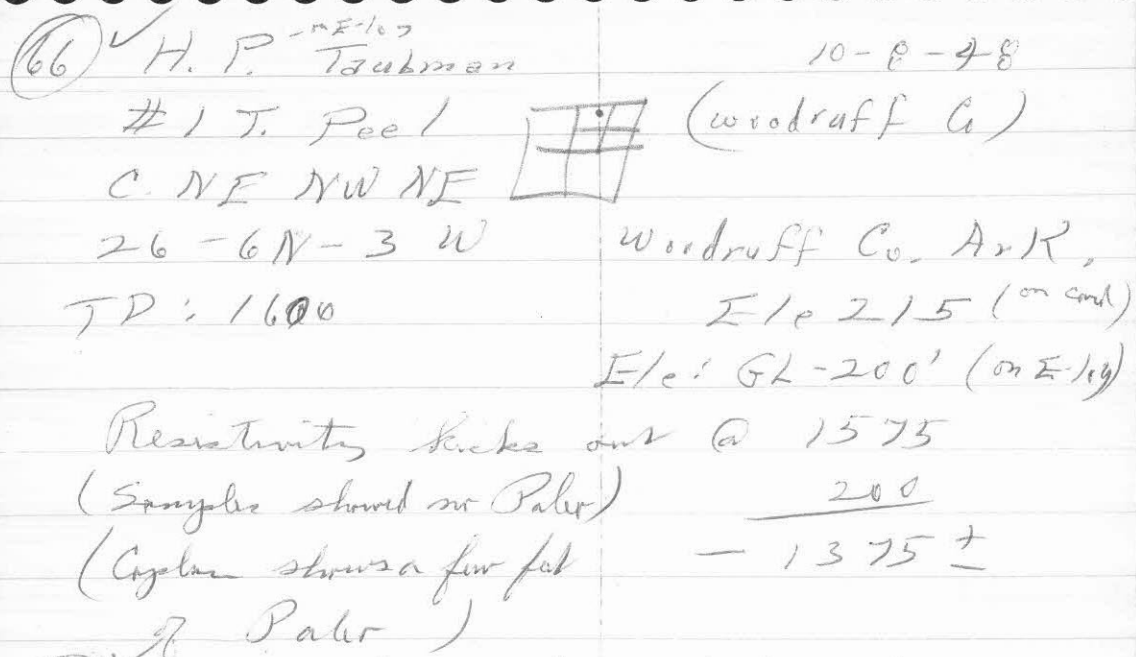 66 ✓ H. P. Taubman -m E-log 10-8-48
#1 T. Peel (Woodruff Co)
C. NE NW NE
26-6N-3W Woodruff Co. Ark.
TD: 1600 Ele 215 (on card)
Ele: GL-200' (on E-log)
Resistivity kicks out @ 1575
(Samples showed no Paler) 200
( shows a few feet - 1375 ±
of Paler)